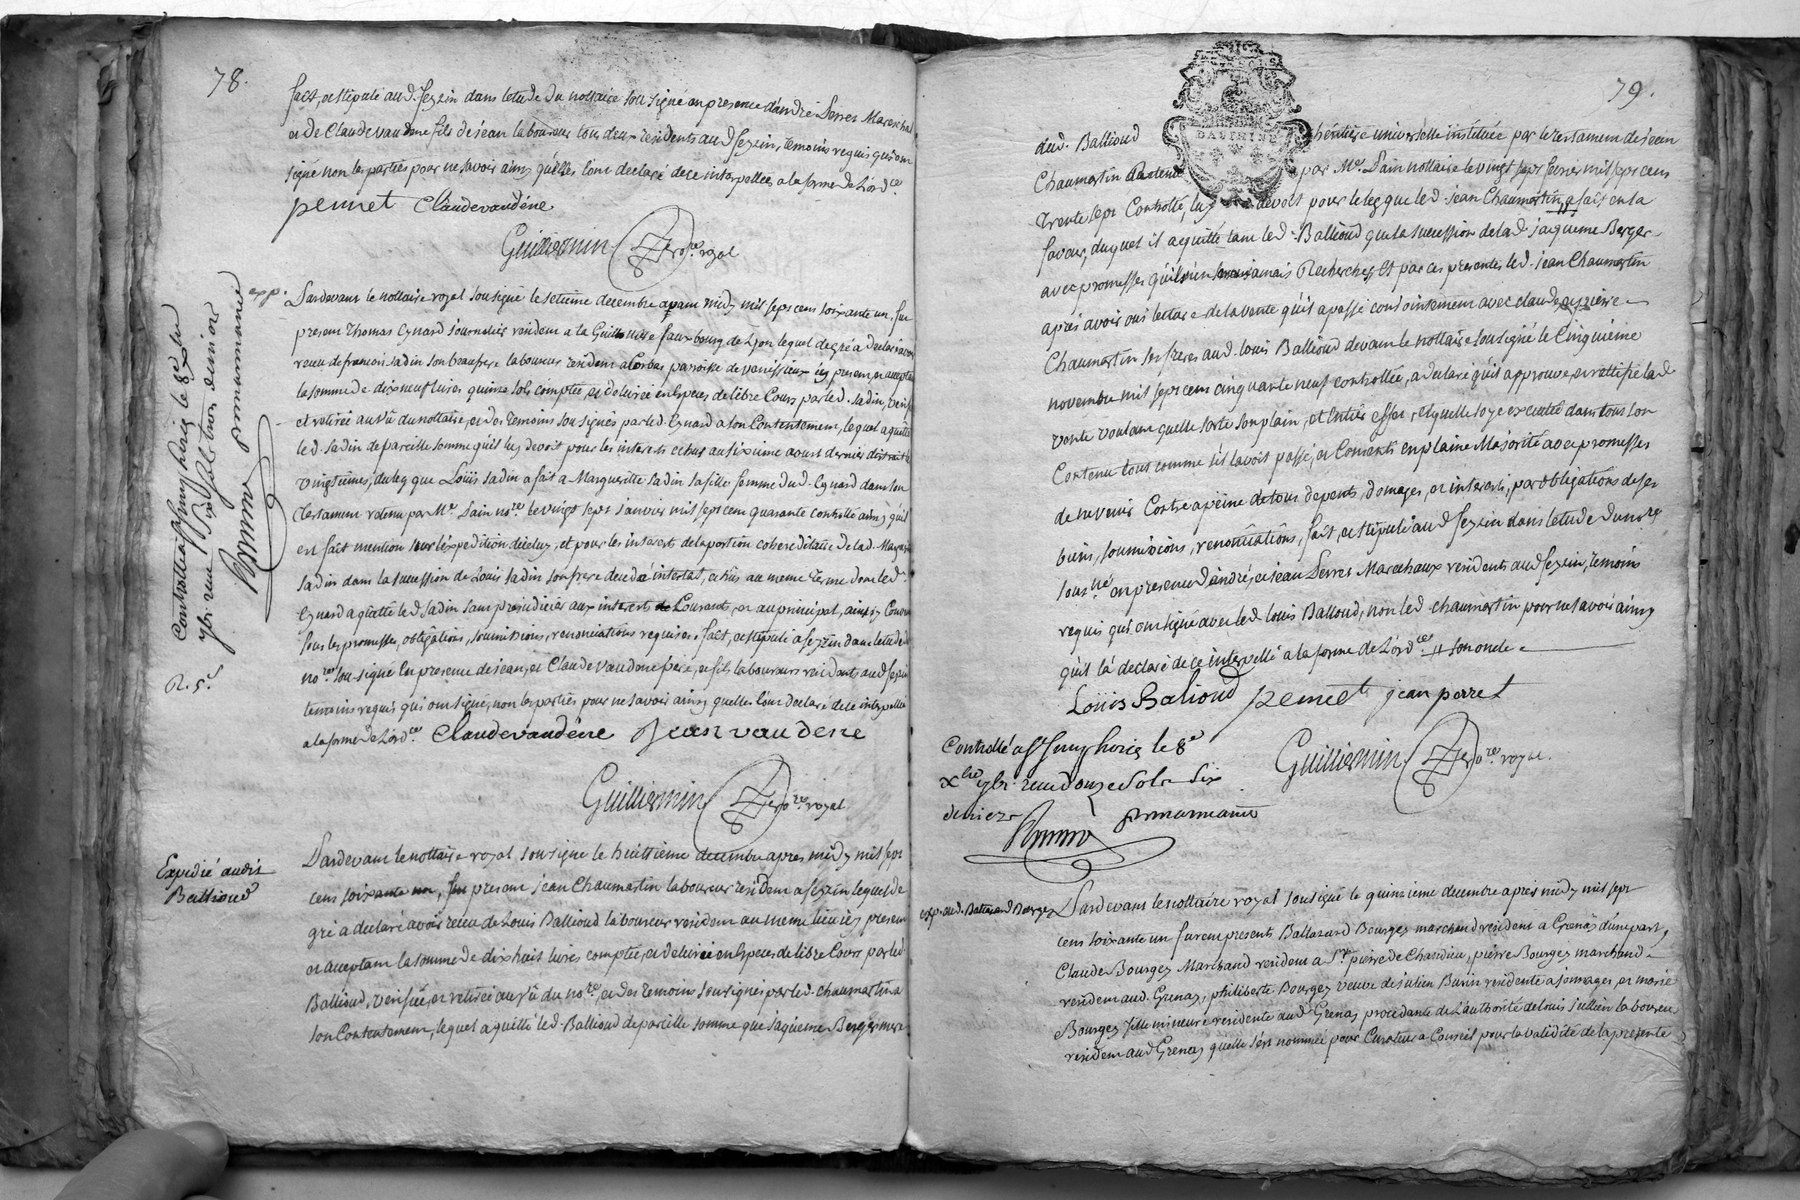 78.
fact, et stipulé aud. Seyzin dans letude du nottaire sousigné en presence d'andré Serret Mareschal
et de Claude vaudene fils de jean laboureur tous deux residents aud. Seyzin, temoins requis qui ont
signé non les parties pour ne savoir ainsy qu'elles l'ont declaré de ce interpellées a la forme de L'ord.ce
perret Claude vaudéne
Guillermin no.re royal
exp.
Pardevant le nottaire royal sousigné le setieme decembre apant midy mil sept cens soixante un, fut
present Thomas Eynard journalier resident a la Guillotiere fauxbourg de Lyon lequel de gré a declaré avoir
receu de francois sadin son beaufrere laboureur resident a Corbas paroisse de venissieux icy present, et acceptant
la somme de dixneuf livres quinze sols comptée, et delivrée en Especes de libre Cours par led. sadin, verif
et retirée au vû du nottaire, et des temoins sousignés par led. Eynard a son Contentement, lequel a quitté
led. sadin de pareille somme qu'il luy devoit pour les interets echus au sixieme aoust dernier distrait l
vingtiemes, du leg que Louis sadin a fait a Marguerite sadin sa fille femme dud. Eynard dans son
testament retenu par M.e Pain no.re le vingt sept janvier mil sept cent quarante controllé ainsy qu'il
est fait mention sur l'expedition diceluy, et pour les interets de la portion cohereditaire de lad. Marg
sadin dans la succession de Louis sadin son frere decedé intestat, echus au meme terme dont led.
Eynard a quitté led. sadin sans prejudicier aux interets de Courants, et au principal, ainsy Conv
sous les promesses, obligations, soumissions, renonciations requises. fait, et stipulé a Seyzin dans letude d
no.re sousigné En presence de jean, et Claude vaudene pere, et fils laboureurs residents aud. Seyzin
temoins requis qui ont signé, non les parties pour ne savoir ainsy quelles l'ont declaré de ce interpellées
a la forme de L'ord.ce Claude vaudéne Jean vau dene
Guillermin no.re royal
Controllé a st simphorien le 8.e x.bre
1761 receu
par nous
R. 5.s
Expedié audit
Ballioud
Pardevant le nottaire royal sousigné le huittieme decembre apres midy mil sept
cens soixante un, fut present jean Chaumartin laboureur resident a Seyzin lequel de
gré a declaré avoir receu de Louis Ballioud laboureur resident au meme lieu icy present
et acceptant la somme de dix huit livres comptée, et delivrée en Especes de libre Cours par led.
Ballioud, verifiée, et retirée au vû du no.re, et des temoins sousignés par led. chaumartin a
son Contentement, lequel a quitté led. Ballioud de pareille somme que jaqueme Berger mere
79.
DAUPHINE
dud. Ballioud héritiere universelle instituée par le testament de jean
Chaumartin par M.e Pain nottaire le vingt sept fevrier mil sept cens
trente sept Controllé, luy devoit pour le leg que led. jean Chaumartin a fait en sa
faveur, duquel il a quitté tant led. Ballioud que la succession de lad. jaqueme Berger
avec promesses qu'ils n'en seront jamais Recherches, Et par ces presentes led. jean Chaumartin
apres avoir oui lecture de la vente qu'il a passé conjointement avec claude, et pierre
Chaumartin ses freres aud. louis Ballioud devant le nottaire sousigné le Cinquieme
novembre mil sept cens cinquante neuf controllée, a declaré qu'il approuve, et rattifie lad.
vente voulant quelle sorte son plain, et Entier effet, et quelle soye executée dans tous son
Contenu tout comme s'il lavoit passé, et Consenti en plaine Majorité avec promesses
de ny venir Contre a peine de tous depents, domages, et interets, par obligations de ses
biens, soumissions, renonciations, fait, et stipulé aud. Seyzin dans letude du no.re
sous.né en presence d'andré, et jean Serret Marechaux residents aud. Seyzin, temoins
requis qui ont signé avec led. louis Ballioud, non led. chaumartin pour ne savoir ainsy
qu'il la declaré de ce interpellé a la forme de L'ord.ce // son oncle
Loüis Balioud perret jean perret
Controllé a st simphorien le 8.e
x.bre 1761 receu douze sols six
deniers
Guillermin no.re royal.
exp. aud. Baltazard Bourgey
Pardevant le nottaire royal sousigné le quinzieme decembre apres midy mil sept
cens soixante un furent presents Baltazard Bourgey marchand resident a Grenay d'une part,
Claude Bourgey Marchand resident a S.t pierre de Chandieu, pierre Bourgey marchand
resident aud. Grenay, philiberte Bourgey veuve de julien Burin residente a jonnages, et marie
Bourgey fille mineure residente aud. Grenay procedante de L'authorité de louis jullien laboureur
resident aud. Grenay quelle s'est nommée pour Curateur a Conseil pour la validité de la presente